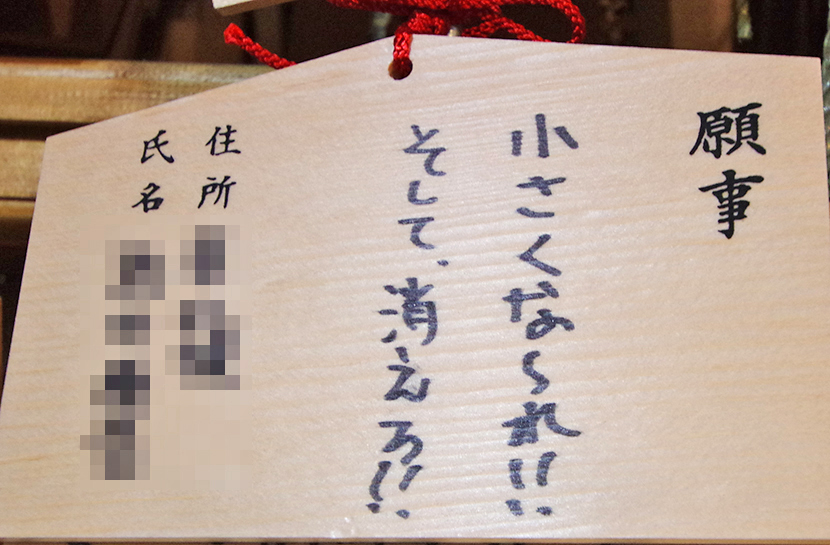 願事
小さくなられ!!
そして、消えろ!!
住所
氏名